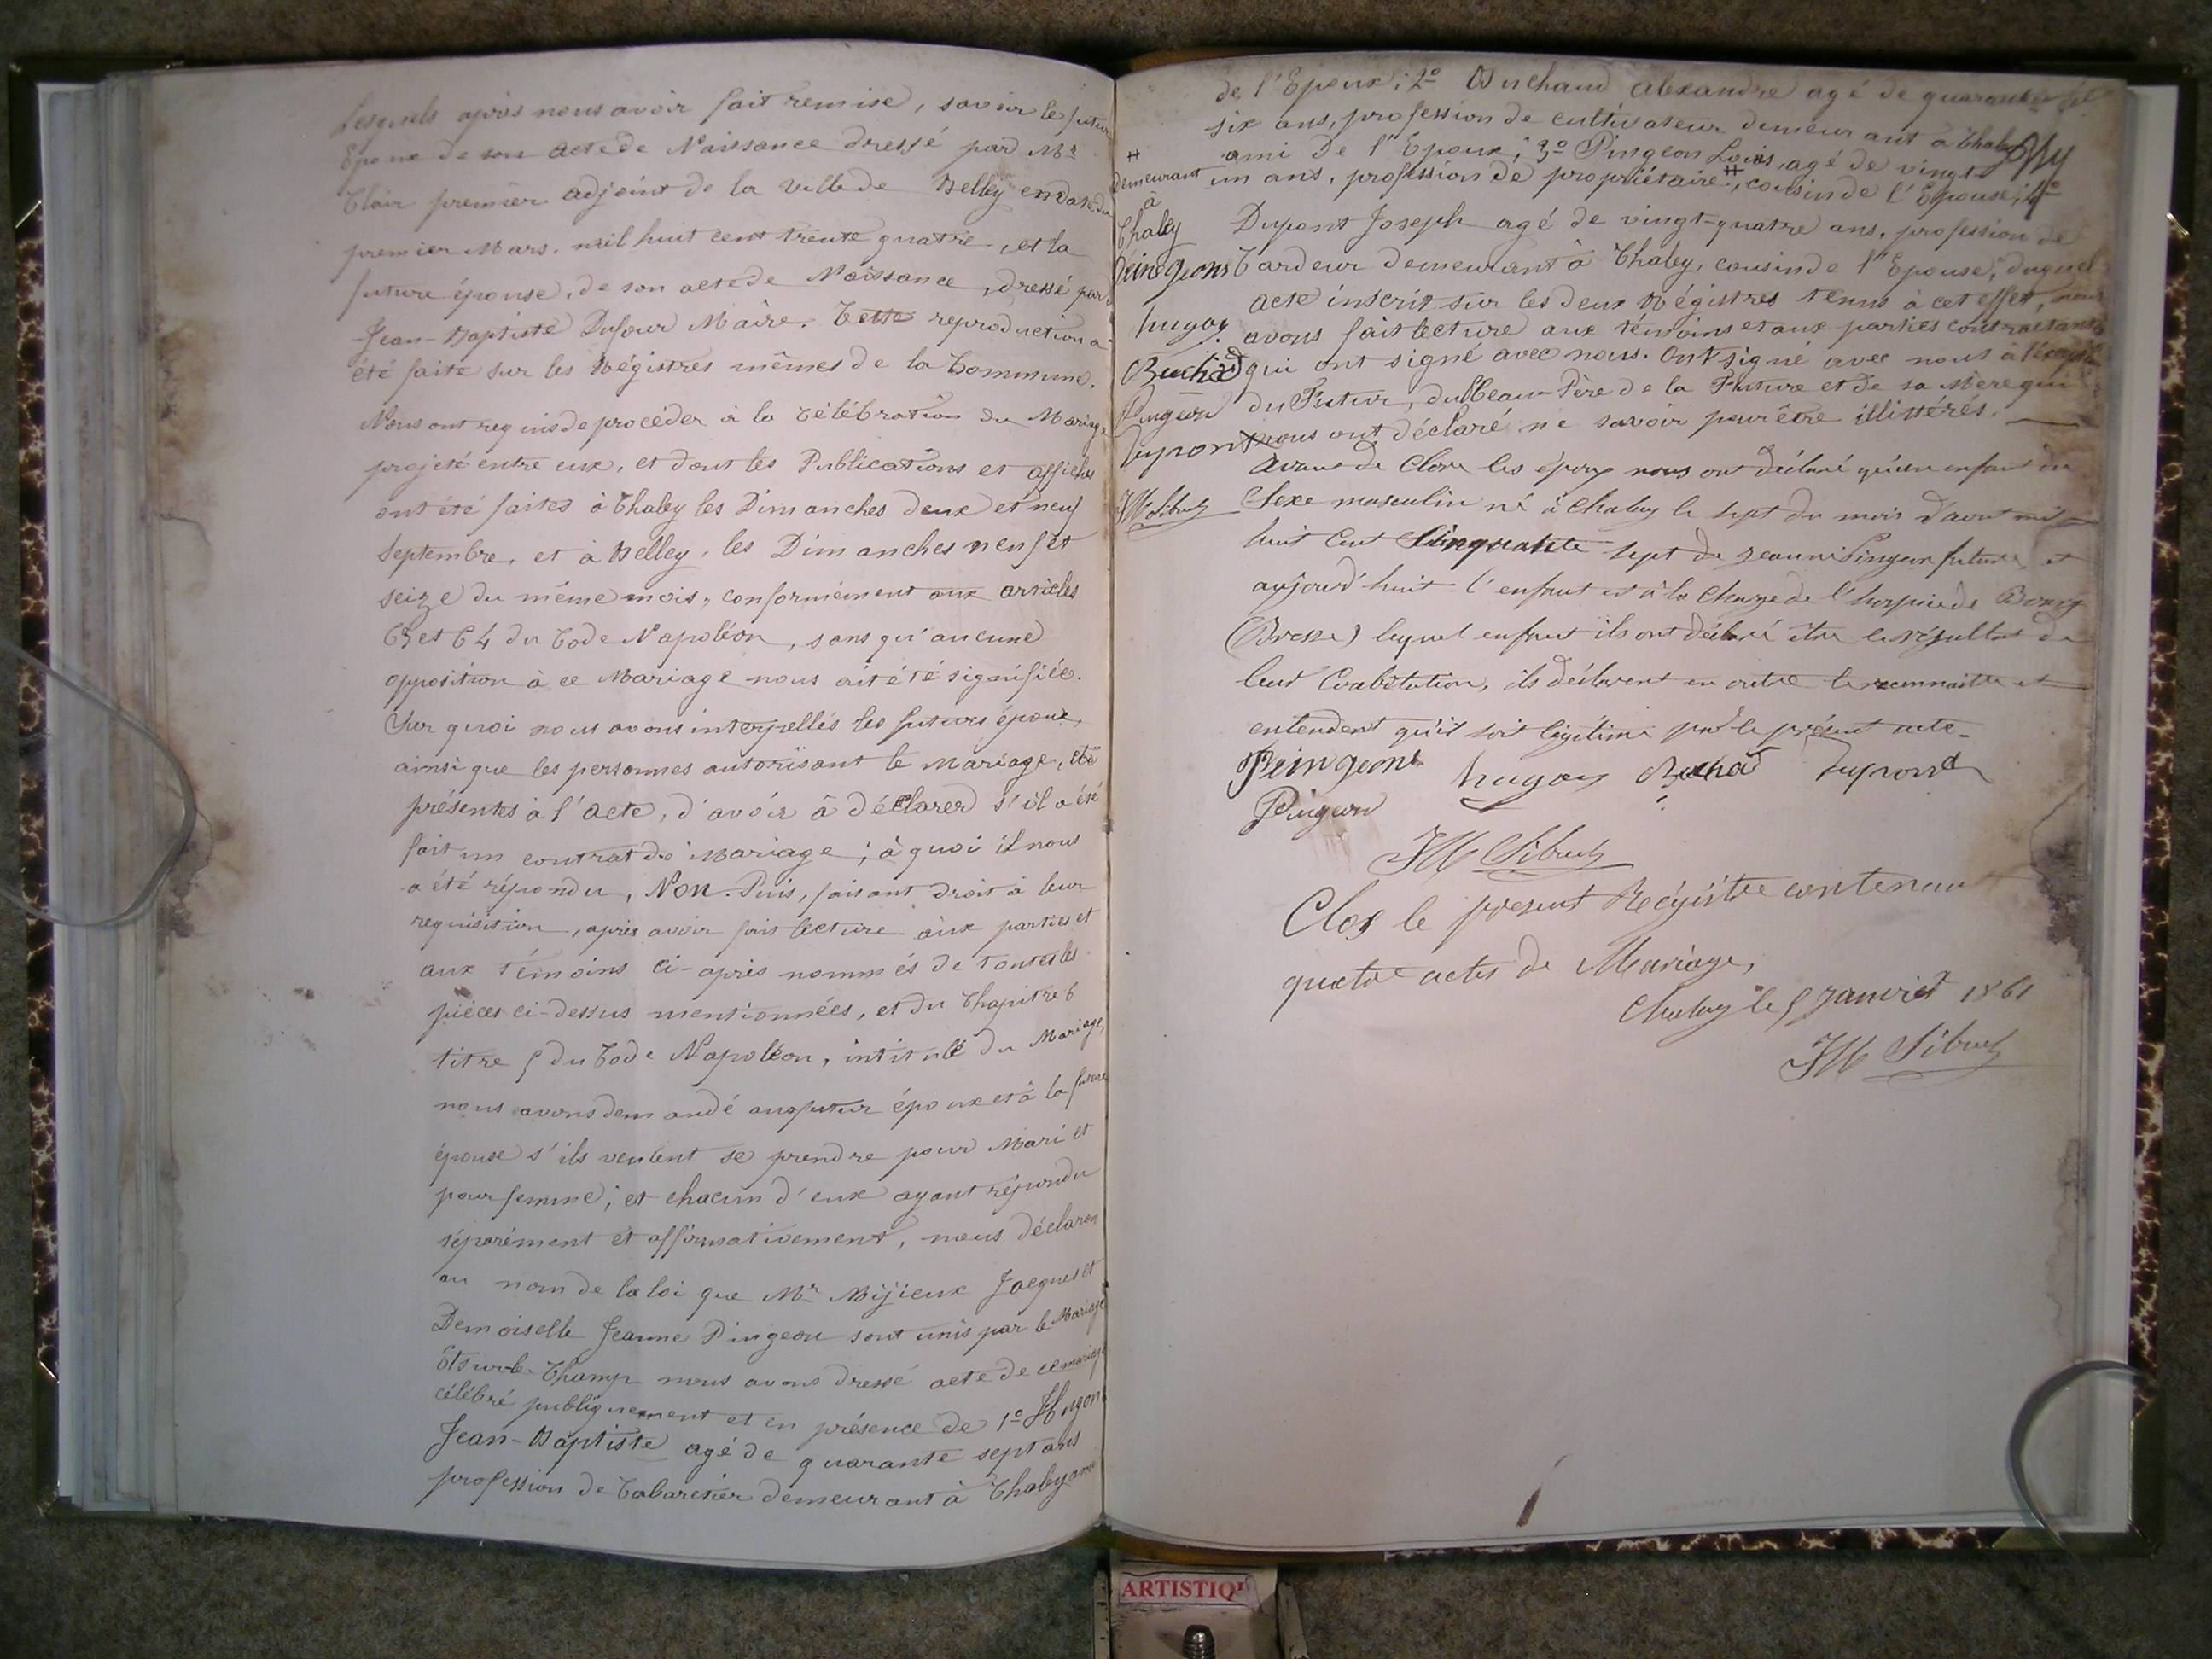 Lesquels après nous avoir fait remise, savoir le futur
Epoux de son acte de Naissance dressé par Mr
Clair premier adjoint de la Ville de Belley en date du
premier Mars mil huit cent trente quatre, et la
future épouse, de son acte de Naissance, dressé par
Jean-Baptiste Dufour Maire. Cette reproduction a
été faite sur les Régistres mêmes de la Commune.
Nous ont requis de procéder à la Célébration du Mariage
projeté entre eux, et dont les Publications et affiches
ont été faites à Chaley les Dimanches deux et neuf
Septembre, et à Belley, les Dimanches neuf et
seize du même mois, conformément aux articles
63 et 64 du Code Napoléon, sans qu'aucune
opposition à ce Mariage nous ait été signifiée.
Sur quoi nous avons interpellés les futurs époux,
ainsi que les personnes autorisant le Mariage, et
présentes à l'acte, d'avoir à déclarer s'il a été
fait un contrat de Mariage; à quoi il nous
a été répondu, Non. Puis, faisant droit à leur
requisition, après avoir fait lecture aux parties et
aux témoins ci-après nommés de toutes les
pièces ci-dessus mentionnées, et du Chapitre 6
titre 5 du Code Napoléon, intitulé du Mariage,
nous avons demandé au futur époux et à la future
épouse s'ils veulent se prendre pour Mari et
pour femme; et chacun d'eux ayant répondu
séparément et affirmativement, nous déclaron
au nom de la loi que Mr Mijieux Jacques et
Demoiselle Jeanne Pingeon sont unis par le Mariage
Et sur le Champ nous avons dressé acte de ce mariage
célébré publiquement et en présence de 1o Hugon
Jean-Baptiste agé de quarante sept ans
profession de Cabaretier demeurant à Chaley ami
de l'Epoux; 2o Buchard Alexandre agé de quarante
six ans, profession de cultivateur demeurant à Chaley
ami de l'Epoux; 3o Pingeon Louis, agé de vingt
un ans, profession de propriétaire #, cousin de l'Epouse; 4o
Dupont Joseph agé de vingt-quatre ans, profession de
Cardeur demeurant à Chaley, cousin de l'Epouse; duquel
acte inscrit sur les deux Régistres tenus à cet effet, nous
avons fait lecture aux témoins et aux parties contractants
qui ont signé avec nous. Ont signé avec nous à l'exception
du Futur, du Beau-Père de la Future et de sa Mère qui
nous ont déclaré ne savoir pour être illistérés.
# demeurant
à
Chaley
Peingeons
hugon
Buchad
Pingeon
dupont
JM Sibuet
Avant de Clore les époux nous ont déclaré qu'un enfant du
Sexe masculin né à Chaley le sept du mois d'aout mil
huit Cent Cinquante sept de Jeanne Pingeon future, et
aujourd'huit l'enfant est à la Charge de l'hospice de Bourg
(Bresse) lequel enfant ils ont déclaré être le résultat de
leur Coabitation, ils déclarent en outre le reconnaitre et
entendent qu'il soit légitimé par le présent acte.
Peingeont hugon Buchad dupond
Pingeon
JM Sibuet
Clos le present Regístre contenan
quatre actes de Mariage,
Chaley le 5 Janvier 1861
JM Sibuet
ARTISTIQ